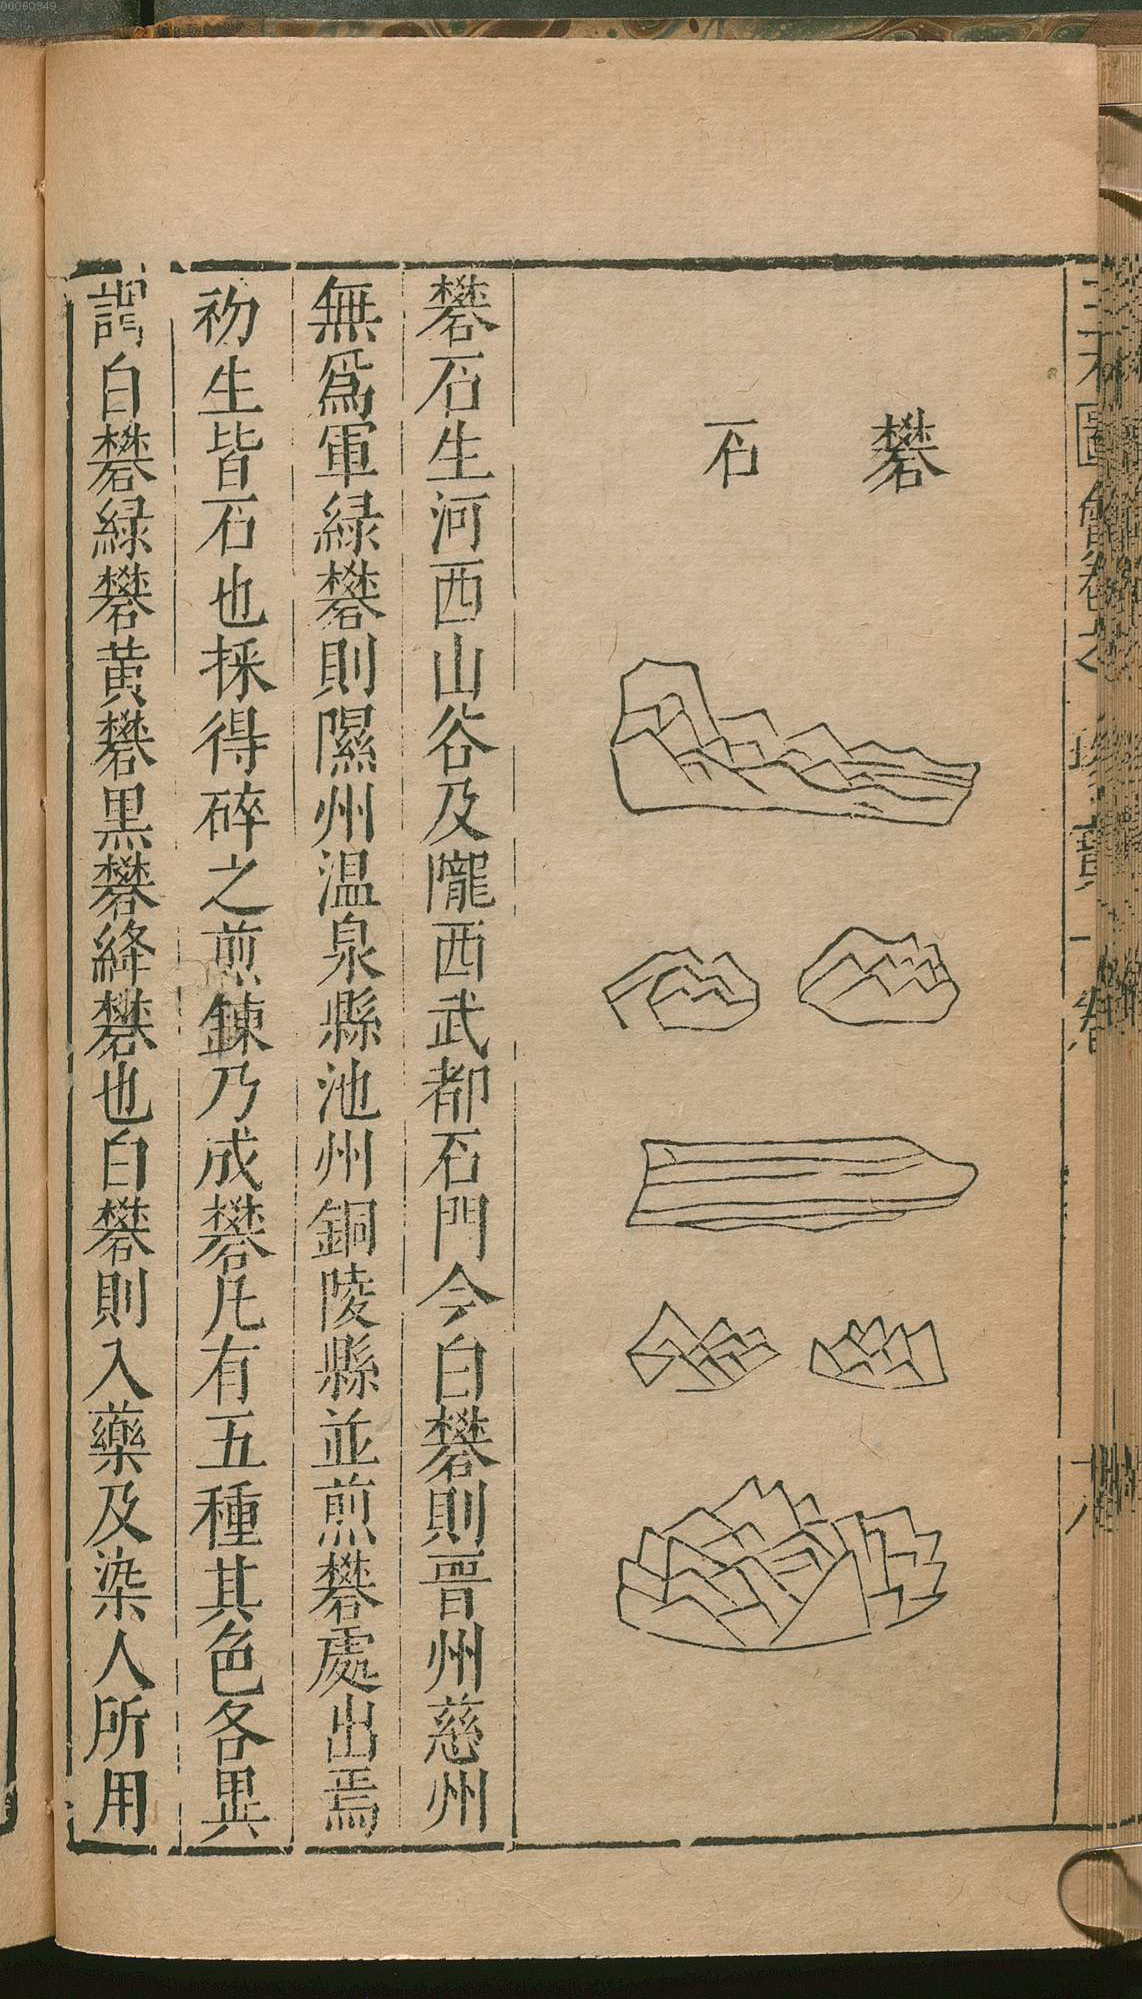 礬石
礬石生河西山谷及隴西武都石門今白礬則晉州慈州
無爲軍緑礬則隰州温泉縣池州銅陵縣並煎礬處出焉
初生皆石也採得碎之煎鍊乃成礬凡有五種其色各異
謂白礬緑礬黄礬黒礬絳礬也白礬則入藥及染人所用
00060349